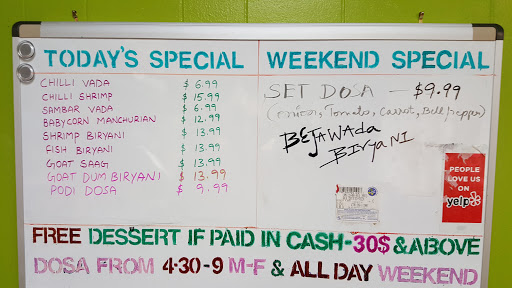 TODAY'S SPECIAL
CHILLI VADA $ 6.99
CHILLI SHRIMP $ 15.99
SAMBAR VADA $ 6.99
BABYCORN MANCHURIAN $ 12.99
SHRIMP BIRYANI $ 13.99
FISH BIRYANI $ 13.99
GOAT SAAG $ 13.99
GOAT DUM BIRYANI $ 13.99
PODI DOSA $ 9.99
WEEKEND SPECIAL
SET DOSA — $9.99
(onion, Tomato, Carrot, Bell pepper)
BEJAWAda
BIryaNI
PEOPLE
LOVE US
ON
yelp
FREE DESSERT IF PAID IN CASH-30$ & ABOVE
DOSA FROM 4:30-9 M-F & ALL DAY WEEKEND